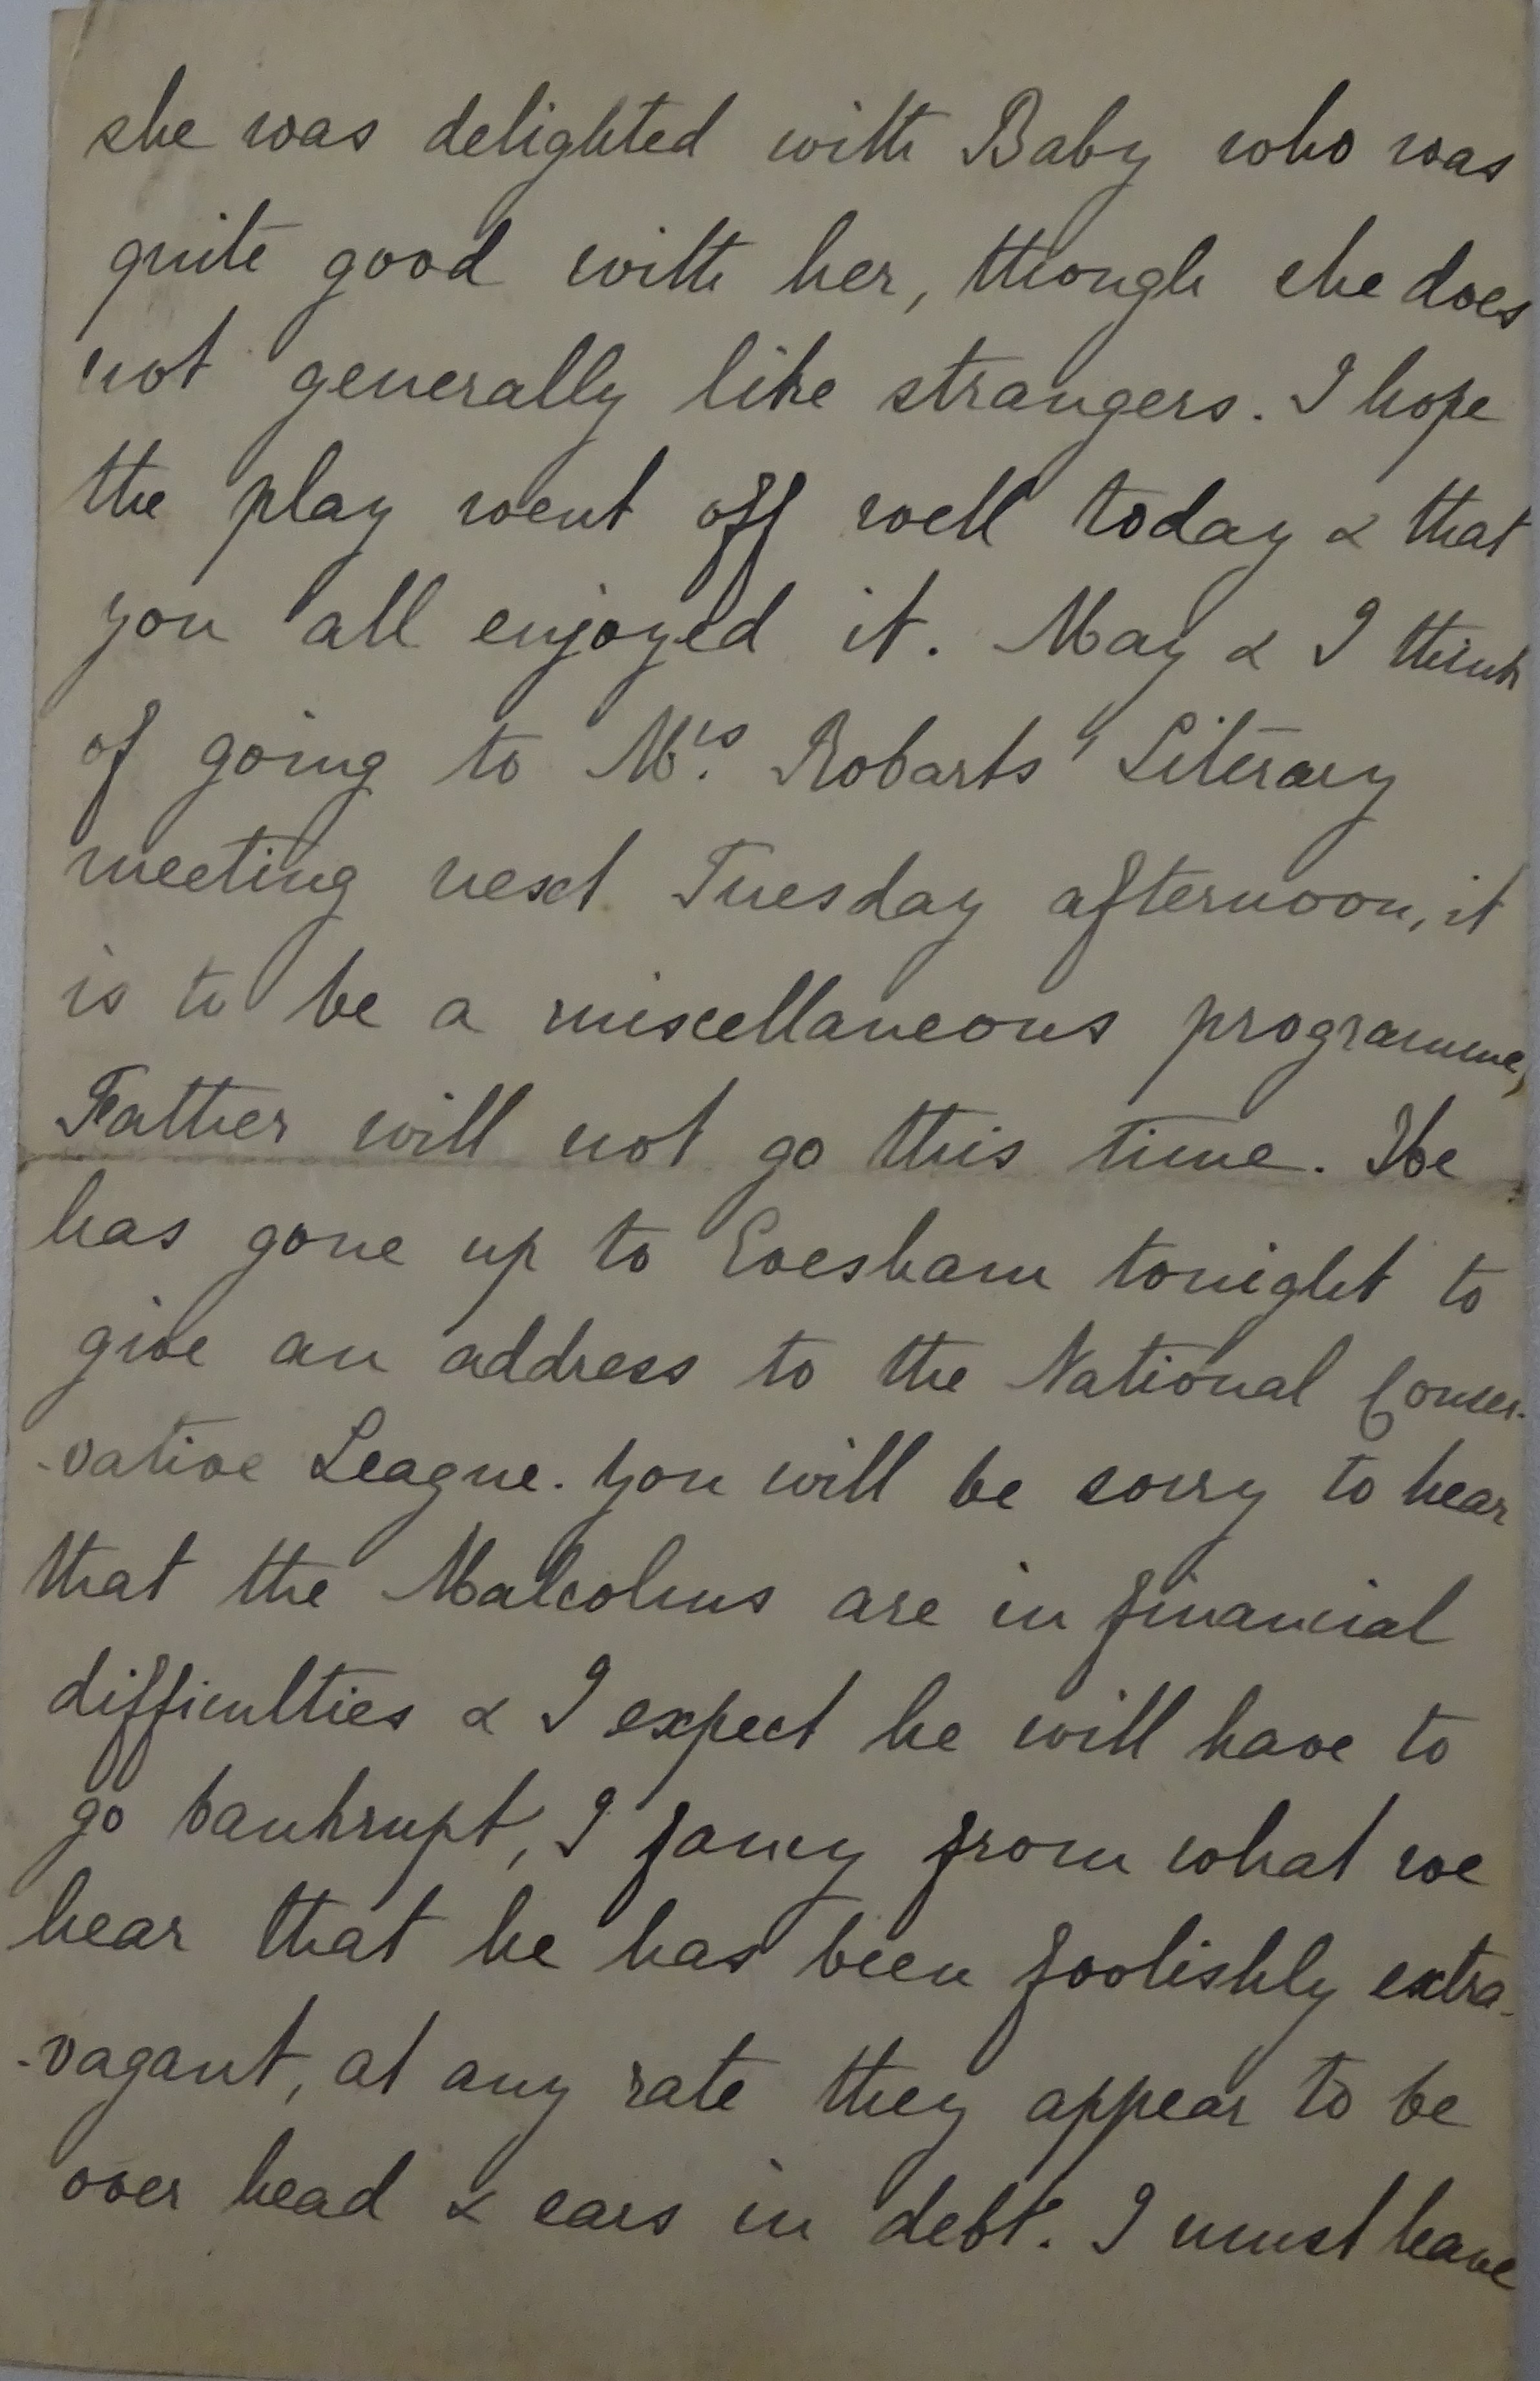 she was delighted with Baby who was
quite good with her, though she does
not generally like strangers. I hope
the play went off well today & that
you all enjoyed it. May & I think
of going to Mrs. Robarts' Literary
meeting next Tuesday afternoon, it
is to be a miscellaneous programme,
Father will not go this time. He
has gone up to Evesham tonight to
give an address to the National Conser-
-vative League. You will be sorry to hear
that the Malcolms are in financial
difficulties & I expect he will have to
go bankrupt, I fancy from what we
hear that he has been foolishly extra-
-vagant, at any rate they appear to be
over head & ears in debt. I must leave